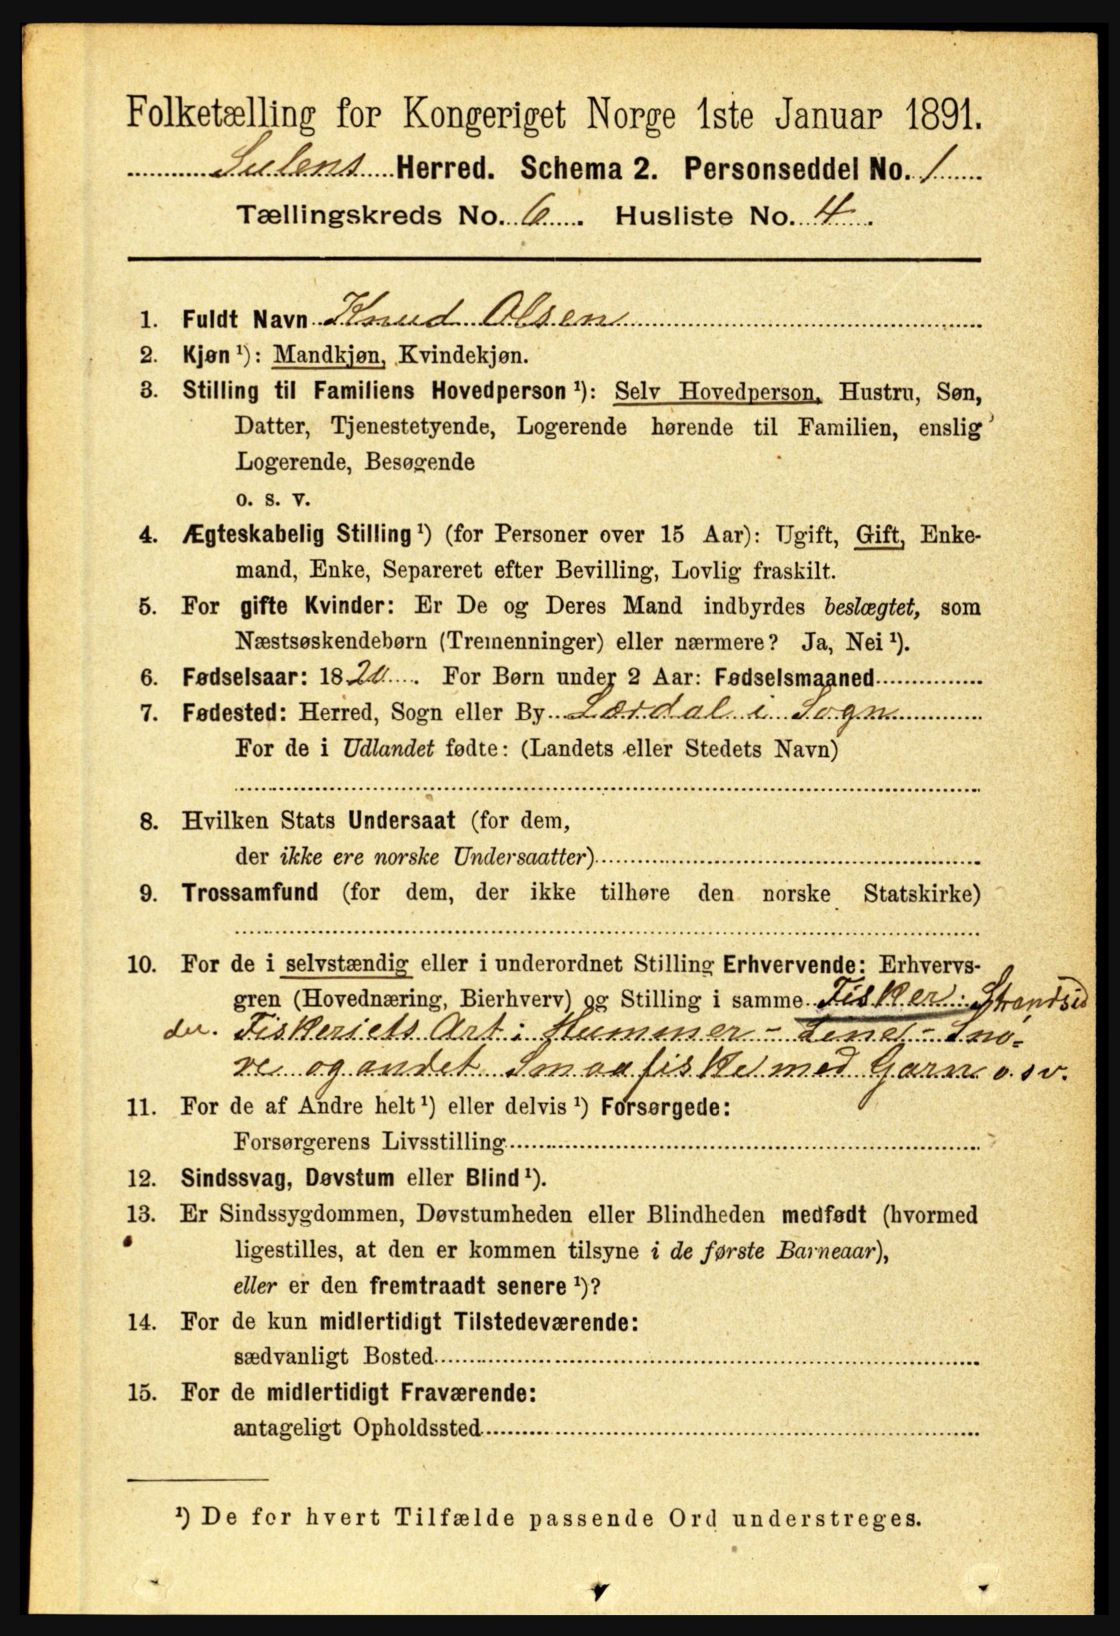 Folketælling for Kongeriget Norge 1ste Januar 1891.
Sulens Herred. Schema 2. Personseddel No. 1
Tællingskreds No. 6. Husliste No. 4.
1. Fuldt Navn Knud Olsen
2. Kjøn ¹): Mandkjøn, Kvindekjøn.
3. Stilling til Familiens Hovedperson ¹): Selv Hovedperson, Hustru, Søn,
Datter, Tjenestetyende, Logerende hørende til Familien, enslig
Logerende, Besøgende
o. s. v.
4. Ægteskabelig Stilling ¹) (for Personer over 15 Aar): Ugift, Gift, Enke-
mand, Enke, Separeret efter Bevilling, Lovlig fraskilt.
5. For gifte Kvinder: Er De og Deres Mand indbyrdes beslægtet, som
Næstsøskendebørn (Tremenninger) eller nærmere? Ja, Nei ¹).
6. Fødselsaar: 1820. For Børn under 2 Aar: Fødselsmaaned
7. Fødested: Herred, Sogn eller By Lærdal i Sogn
For de i Udlandet fødte: (Landets eller Stedets Navn)
8. Hvilken Stats Undersaat (for dem,
der ikke ere norske Undersaatter)
9. Trossamfund (for dem, der ikke tilhøre den norske Statskirke)
10. For de i selvstændig eller i underordnet Stilling Erhvervende: Erhvervs-
gren (Hovednæring, Bierhverv) og Stilling i samme Fisker. Strandsid
der. Fiskeriets Art: Hummer- Line- Snø=
re og andet Smaafiske med Garn o. sv.
11. For de af Andre helt ¹) eller delvis ¹) Forsørgede:
Forsørgerens Livsstilling
12. Sindssvag, Døvstum eller Blind ¹).
13. Er Sindssygdommen, Døvstumheden eller Blindheden medfødt (hvormed
ligestilles, at den er kommen tilsyne i de første Barneaar),
eller er den fremtraadt senere ¹)?
14. For de kun midlertidigt Tilstedeværende:
sædvanligt Bosted
15. For de midlertidigt Fraværende:
antageligt Opholdssted
¹) De for hvert Tilfælde passende Ord understreges.